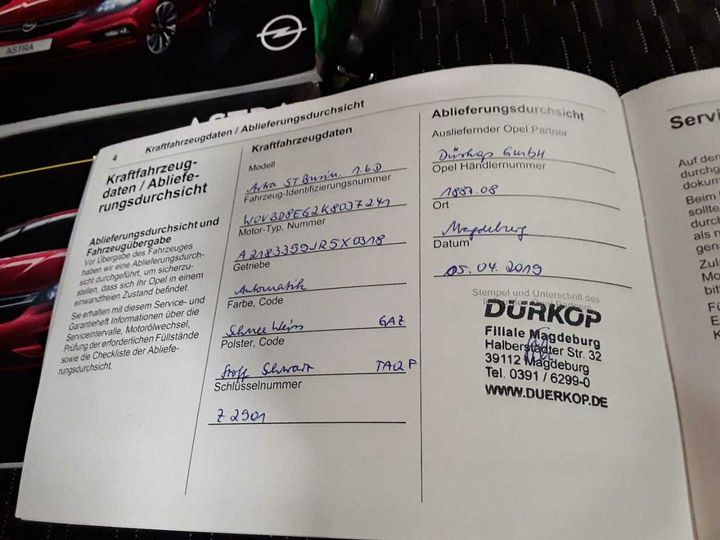 ASTRA
4 Kraftfahrzeugdaten / Ablieferungsdurchsicht
Kraftfahrzeug-
daten / Abliefe-
rungsdurchsicht
Ablieferungsdurchsicht und
Fahrzeugübergabe
Vor Übergabe des Fahrzeuges
haben wir eine Ablieferungsdurch-
sicht durchgeführt, um sicherzu-
stellen, dass sich Ihr Opel in einem
einwandfreien Zustand befindet.
Sie erhalten mit diesem Service- und
Garantieheft Informationen über die
Serviceintervalle, Motorölwechsel,
Prüfung der erforderlichen Füllstände
sowie die Checkliste der Abliefe-
rungsdurchsicht.
Kraftfahrzeugdaten
Modell
Astra ST Busin. 1.6D
Fahrzeug-Identifizierungsnummer
W0VBD8EG2K8037241
Motor-Typ, Nummer
A2183399JR5X0318
Getriebe
Automatik
Farbe, Code
Schnee Weiss GAZ
Polster, Code
Stoff Schwarz TAQP
Schlüsselnummer
Z 2901
Ablieferungsdurchsicht
Ausliefernder Opel Partner
Dürkop GmbH
Opel Händlernummer
1887.08
Ort
Magdeburg
Datum
05.04.2019
Stempel und Unterschrift des
DÜRKOP
Filiale Magdeburg
Halberstädter Str. 32
39112 Magdeburg
Tel. 0391 / 6299-0
WWW.DUERKOP.DE
Servi
Auf den
durchg
dokum
Beim
sollte
durch
als n
gen
Zul
Mo
bit
F
E
K